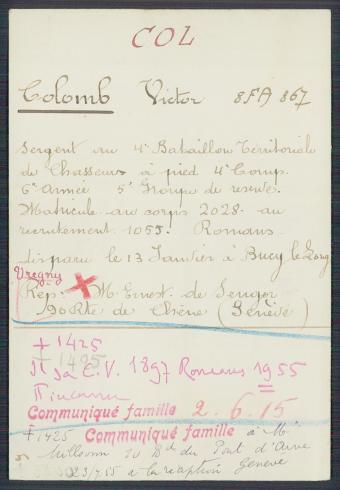 COL
Colomb Victor 8FA 867
Sergent au 4e Bataillon Territoriale
de Chasseurs à pied 4e Corps.
6e Armée 5e Groupe de reserve.
Matricule au corps 2028. au
recrutement 1055. Romans
disparu le 13 Janvier à Bucy le Long
Vregny
Rep: M. Ernest de Seugor
90 Rte de Chêne (Genève)
+ 1425
+ 1425
C.V. 1897 Romans 1955
Communiqué famille 2.6.15
+ 1425 Communiqué famille à Mr
Millsom 20 Bd du Pont d'Arve
23/7.15 à la réception Genève